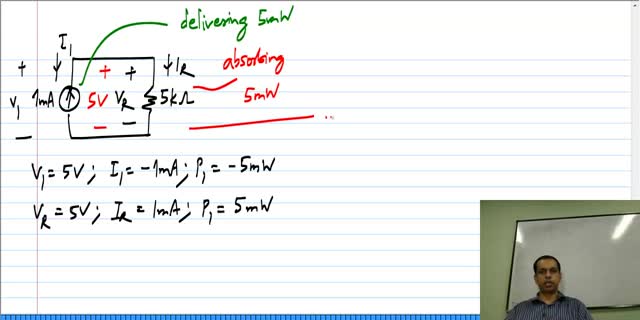 delivering 5mW
I₁
I_R
absorbing
+ + +
V₁ 1mA 5V V_R 5kΩ 5mW
− − −
V₁ = 5V; I₁ = -1mA; P₁ = -5mW
V_R = 5V; I_R = 1mA; P₁ = 5mW